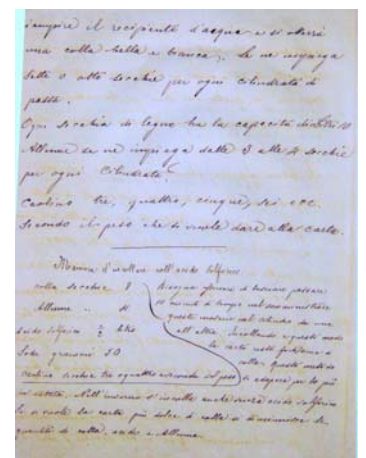 riempire il recipiente d'acqua e si otterrà
una colla bella e bianca. Se ne impiega
sette o otto secchie per ogni cilindrata di
pasta.
Ogni secchia di legno ha la capacità di litri 10
Allume se ne impiega dalle 3 alle 4 secchie
per ogni Cilindrata.
Caolino tre, quattro, cinque, sei ecc.
Secondo il peso che si vuole dare alla carta.
Maniera d'incollare coll'acido Solforico
colla secchie 8
Allume "
Acido solforico ½ kilo
Soda grammi 50
Bisogna procurare di lasciare passare
10 minuti di tempo nel somministrare
queste materie nel cilindro da una
all'altra. Incollando a questo modo
la carta resta fortissima di
colla. Questo metodo
Caolino secchie tre o quattro secondo il peso
si adopera per lo più
in estate. Nell'inverno si incolla anche senza acido solforico
Se si vuole la carta più dolce di colla si diminuisce la
quantità di colla, acido e Allume.